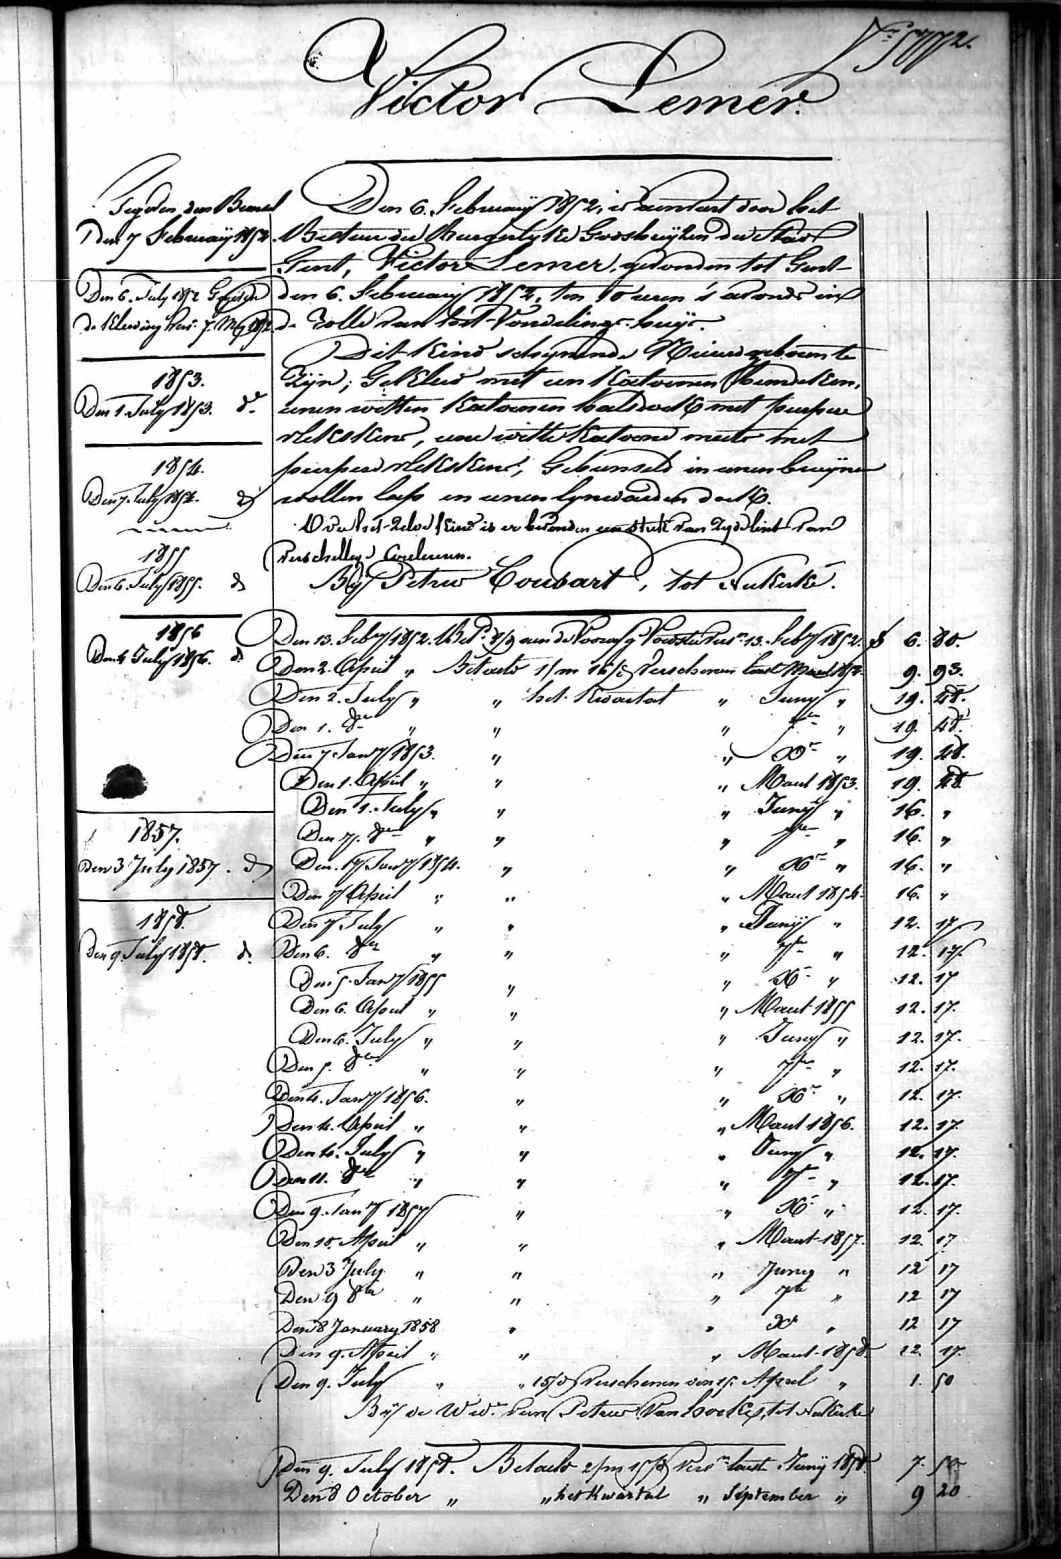 Victor Lemer.
Gegeven den Bundel
Den 7 February 1852
Den 6. July 1852
de Kleeding
1853.
Den 1. July 1853. do
1854.
Den 7. July 1854. do
1855
Den 6. July 1855. do
1856
Den 4 July 1856. do
1857.
Den 3 July 1857. do
1858.
Den 9. July 1858. do
Den 6. February 1852, is aenvaert door het
Bestuur der Burgerlyke Godshuyzen der Stad
Gent, Victor Lemer, gevonden tot Gend
den 6. February 1852, ten 10 uren 's avonds in
de Rolle van het Vondelings-huys.
Dit Kind schynende Nieuwgeboren te
Zyn; Gekleed met een Katoenen hemdeken,
eenen witten katoenen halsdoek met purpere
vlekskens, eene witte katoene muts met
purpere vlekskens, Gebunseld in eenen bruynen
wollen lap en eenen lynwaeden doek.
Op het zelve kind is er bevonden een stuk van zyde lint van
verschellige Couleuren.
By Petrus Coubart, tot Nukerke.
Den 13. Feby 1852. Bet. aen de Voorzz. Voedster vers. 13. Feby 1852. f 6. 80.
Den 2. April " Betaeld 1/m 16/d Verschenen laest Maert 1852. 9. 93.
Den 2. July " " het Kwartael " Juny " 19. 28.
Den 1. 8re " " " 7re " 19. 28.
Den 7 Jany 1853. " " Xr " 19. 28.
Den 1. April " " " Maert 1853. 19. 28
Den 1. July " " " Juny " 16. "
Den 7. 8re " " " 7re " 16. "
Den 17. Jany 1854. " " Xr " 16. "
Den 7 April " " " Maert 1854. 16. "
Den 7 July " " " Juny " 12. 17.
Den 6. 8re " " " 7re " 12. 17.
Den 5. Jany 1855 " " Xr " 12. 17
Den 6. April " " " Maert 1855 12. 17.
Den 6. July " " " Juny " 12. 17.
Den 5. 8re " " " 7re " 12. 17.
Den 4. Jany 1856. " " Xr " 12. 17.
Den 4. April " " " Maert 1856. 12. 17.
Den 4. July " " " Juny " 12. 17.
Den 11. 8re " " " 7re " 12. 17.
Den 9. Jany 1857 " " Xr " 12. 17.
Den 10. April " " " Maert 1857. 12. 17.
Den 3 July " " " Juny " 12 17
Den 9 8re " " " 7re " 12 17
Den 8 January 1858 " " Xr " 12 17
Den 9. April " " " Maert 1858 12. 17.
Den 9. July " " 15/d Verschenen den 15. April " 1. 50
By de Wwe. van Petrus Van hoecke, tot Nukerke
Den 9. July 1858. Betaeld 2/m 15/d Vers. laest Juny 1858 7. 50
Den 8 October " " het Kwartal " September " 9 20